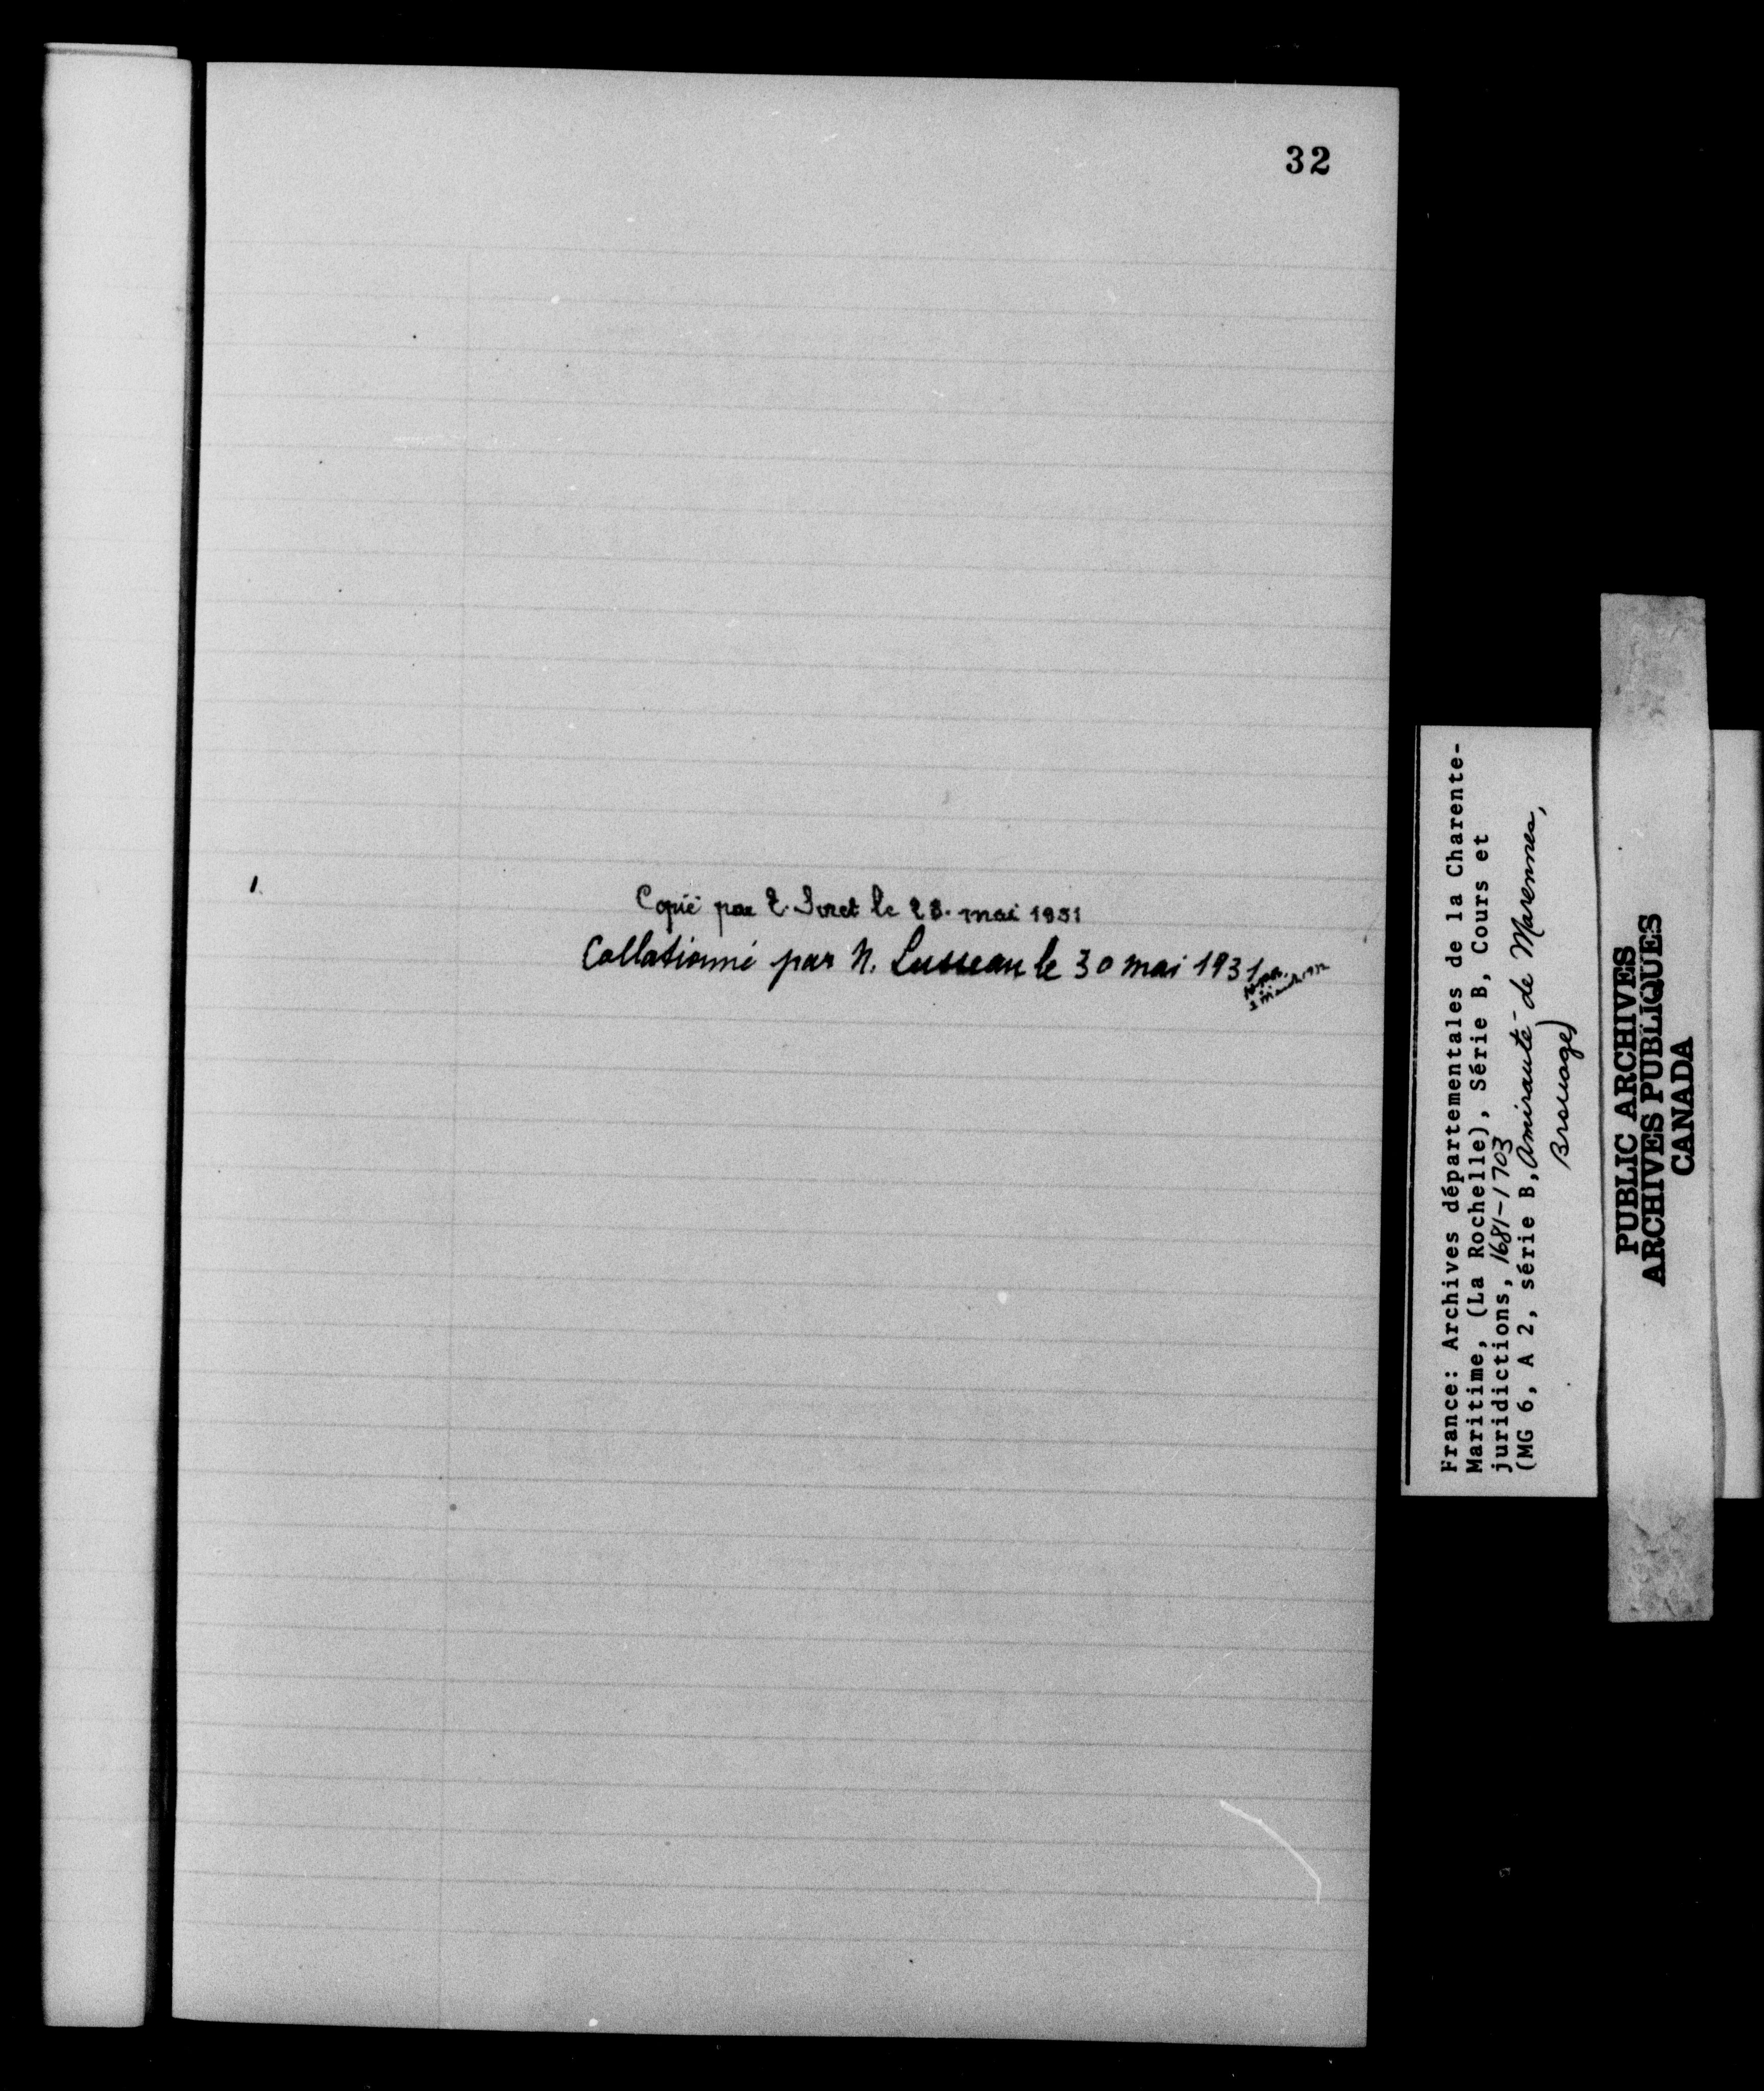 32
Copié par Z. Soret le 28. mai 1931
Collationné par N. Lusseau le 30 mai 1931
France: Archives départementales de la Charente-
Maritime, (La Rochelle), Série B, Cours et
juridictions, 1681-1703
(MG 6, A 2, série B, Amirauté de Marennes,
Brouage)
PUBLIC ARCHIVES
ARCHIVES PUBLIQUES
CANADA